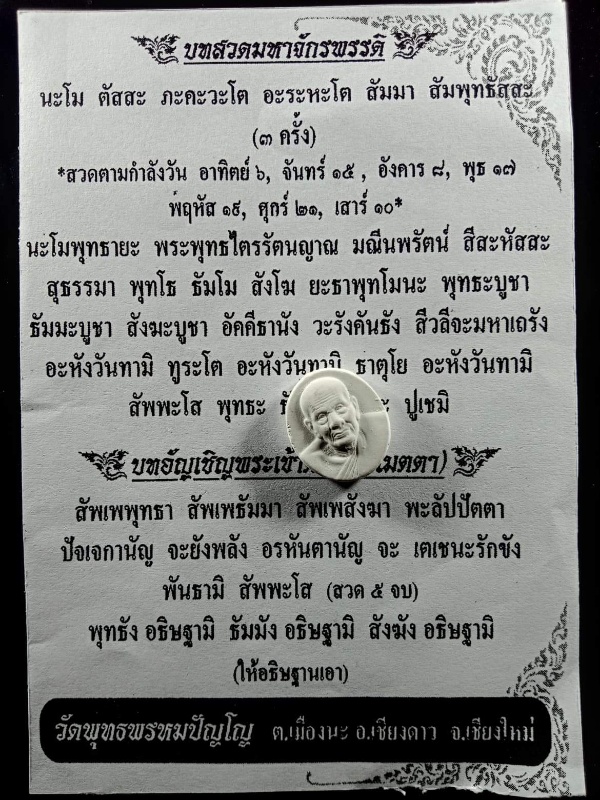 บทสวดมหาจักรพรรดิ
นะโม ตัสสะ ภะคะวะโต อะระหะโต สัมมา สัมพุทธัสสะ
(๓ ครั้ง)
*สวดตามกำลังวัน อาทิตย์ ๖, จันทร์ ๑๕ , อังคาร ๘, พุธ ๑๗
พฤหัส ๑๙, ศุกร์ ๒๑, เสาร์ ๑๐*
นะโมพุทธายะ พระพุทธไตรรัตนญาณ มณีนพรัตน์ สีสะหัสสะ
สุธรรมา พุทโธ ธัมโม สังโฆ ยะธาพุทโมนะ พุทธะบูชา
ธัมมะบูชา สังฆะบูชา อัคคีธานัง วะรังคันธัง สีวลีจะมหาเถรัง
อะหังวันทามิ ทูระโต อะหังวันทามิ ธาตุโย อะหังวันทามิ
สัพพะโส พุทธะ ปูเชมิ
บทอัญเชิญพระเข้า เมตตา)
สัพเพพุทธา สัพเพธัมมา สัพเพสังฆา พะลัปปัตตา
ปัจเจกานัญ จะยังพลัง อรหันตานัญ จะ เตเชนะรักขัง
พันธามิ สัพพะโส (สวด ๕ จบ)
พุทธัง อธิษฐามิ ธัมมัง อธิษฐามิ สังฆัง อธิษฐามิ
(ให้อธิษฐานเอา)
วัดพุทธพรหมปัญโญ ต.เมืองนะ อ.เชียงดาว จ.เชียงใหม่